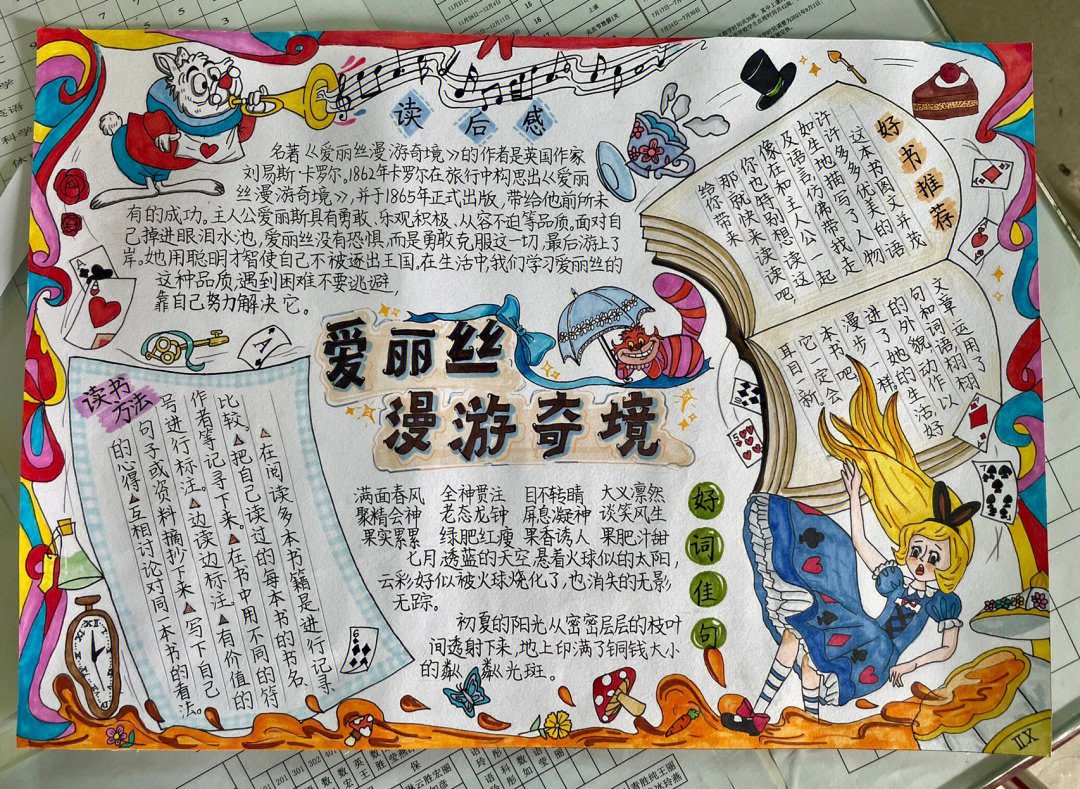 读后感
名著《爱丽丝漫游奇境》的作者是英国作家
刘易斯·卡罗尔。1862年卡罗尔在旅行中构思出《爱丽
丝漫游奇境》,并于1865年正式出版,带给他前所未
有的成功。主人公爱丽斯具有勇敢、乐观积极、从容不迫等品质。面对自
己掉进眼泪水池,爱丽丝没有恐惧,而是勇敢克服这一切,最后游上了
岸。她用聪明才智使自己不被逐出王国。在生活中,我们学习爱丽丝的
这种品质,遇到困难不要逃避,
靠自己努力解决它。
好书推荐
这本书图文并茂
许许多多优美的物语
如生地描写了人物
及语言,仿佛带我走
像在和主人公一起
你也特别想读这
那就快来读读吧
给你带来
文章运用了栩栩
句和词语,以
的外貌动作
进了她的生活,好
漫步一样
本书吧
它一定会
耳目一新
爱丽丝
漫游奇境
读书方法
▲在阅读多本书籍是进行记录、
比较▲把自己读过的每本书的书名、
作者等记寻下来。▲在书中用不同的符
号进行标注。▲边读边标注。▲有价值的
句子或资料摘抄下来▲写下自己
的心得▲互相讨论对同一本书的看法。
好词佳句
满面春风 全神贯注 目不转睛 大义凛然
聚精会神 老态龙钟 屏息凝神 谈笑风生
果实累累 绿肥红瘦 果香诱人 果肥汁甜
七月透蓝的天空,悬着火球似的太阳,
云彩好似被火球烧化了,也消失的无影
无踪。
初夏的阳光从密密层层的枝叶
间透射下来,地上印满了铜钱大小
的粼粼光斑。